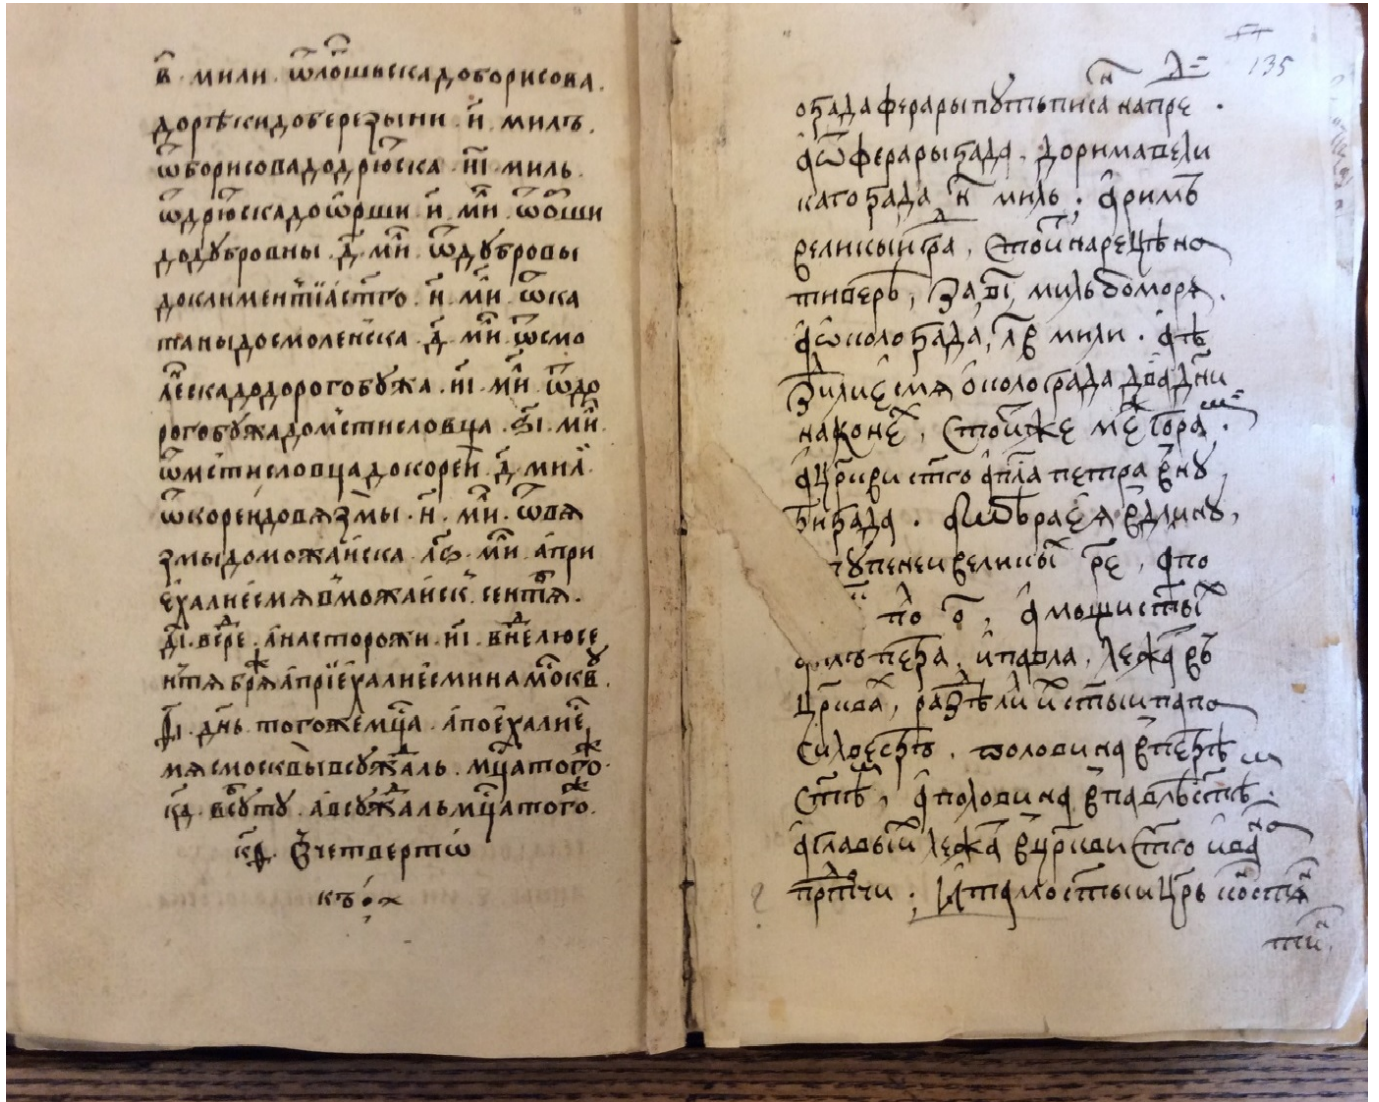 в҃. мили. ѿ лошьска до борисова.
до рѣки до березыни. и҃. миль.
ѿ борисова до дрюⷰска. и҃і. миль.
ѿ дрюⷰска до ѡрши. и҃. мⷧи. ѿ оⷬши
до дубровны. д҃. мⷧи. ѿ дубровы
до климентїѧ ст҃го. и҃. мⷧи. ѿ ка
таны до смоленска. д҃. мⷧи. ѿ смо
леⷩска до дорогобужа. и҃і. мⷧи. ѿ до
рогобужа до мстиславца. мⷧи.
ѿ мстисловца до кореи. д҃. милⷧ.
ѿ кореи до вѧзмы. и҃. мⷧи. ѿ вѧ
змы до можаиска. мⷧи. а при
ѣхали есмѧ в можаискъ. сентѧ.
д҃і. в сереⷣ. а на сторожи. и҃і. в неⷣлю се
нтѧбрѧ а прїѣхали есми на москвꙋ.
дн҃ь того же мцⷭа. а поѣхали е
мѧ с москвы в суждаль. мцⷭа тогоⷤ.
к҃д. в суⷠту. а в суждаль мцⷭа тогоⷤ.
к҃д. в четвертѡ
къ.
л҃
135
ѡ града ферары путь писаⷩ напре.
а ѿ ферары града. до рима вели
каго града н҃ миль. а римъ
великыи граⷣ, стоитⷮ на рецѣ на
тиверѣ, за в҃і миль ѡ моря.
а ѡколо града, л҃в мили. а ѣ
здили есмя около града два дн҃и
на конеⷯ, стоиⷮ же межⷣ гора.
а цр҃кви ст҃го апⷭла петра вну
три града. а ѡбраз еѧ в длину,
ступенеи великыⷯ р҃е, а по
о҃, а мощи ст҃ыⷯ
петра, и павла, лежаⷮ въ
цр҃кваⷯ, раздѣлиⷧ иⷯ ст҃ыи папа
силвестръ. половина в петрѣ
ст҃ѣм, а половина в павлѣ ст҃ѣ.
а главы иⷯ лежаⷮ в цр҃кви ст҃го ива
прⷣтчи. И тамо ст҃ыи цр҃ь костѧ
тиⷩ,